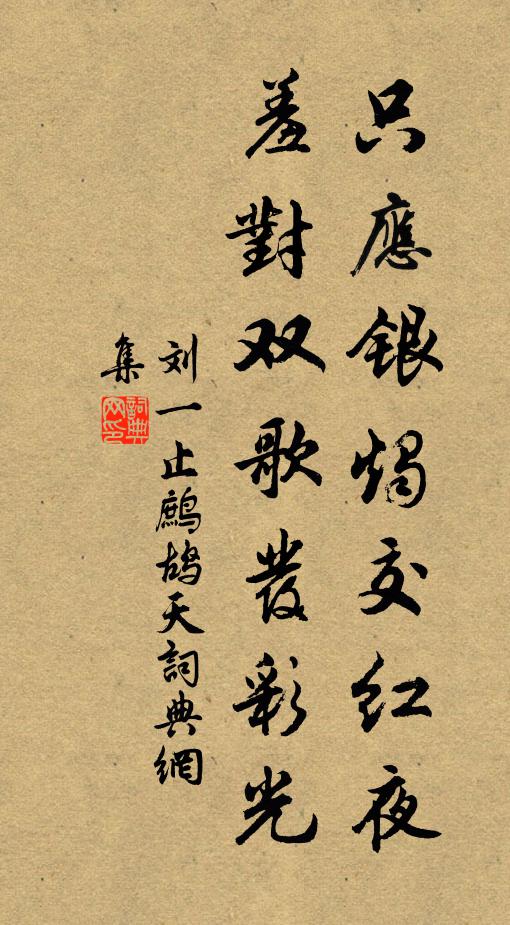 只應銀燭交红夜
羞對双歌發彩光
刘一止鷓鴣天詞典網
集
詞典
网印